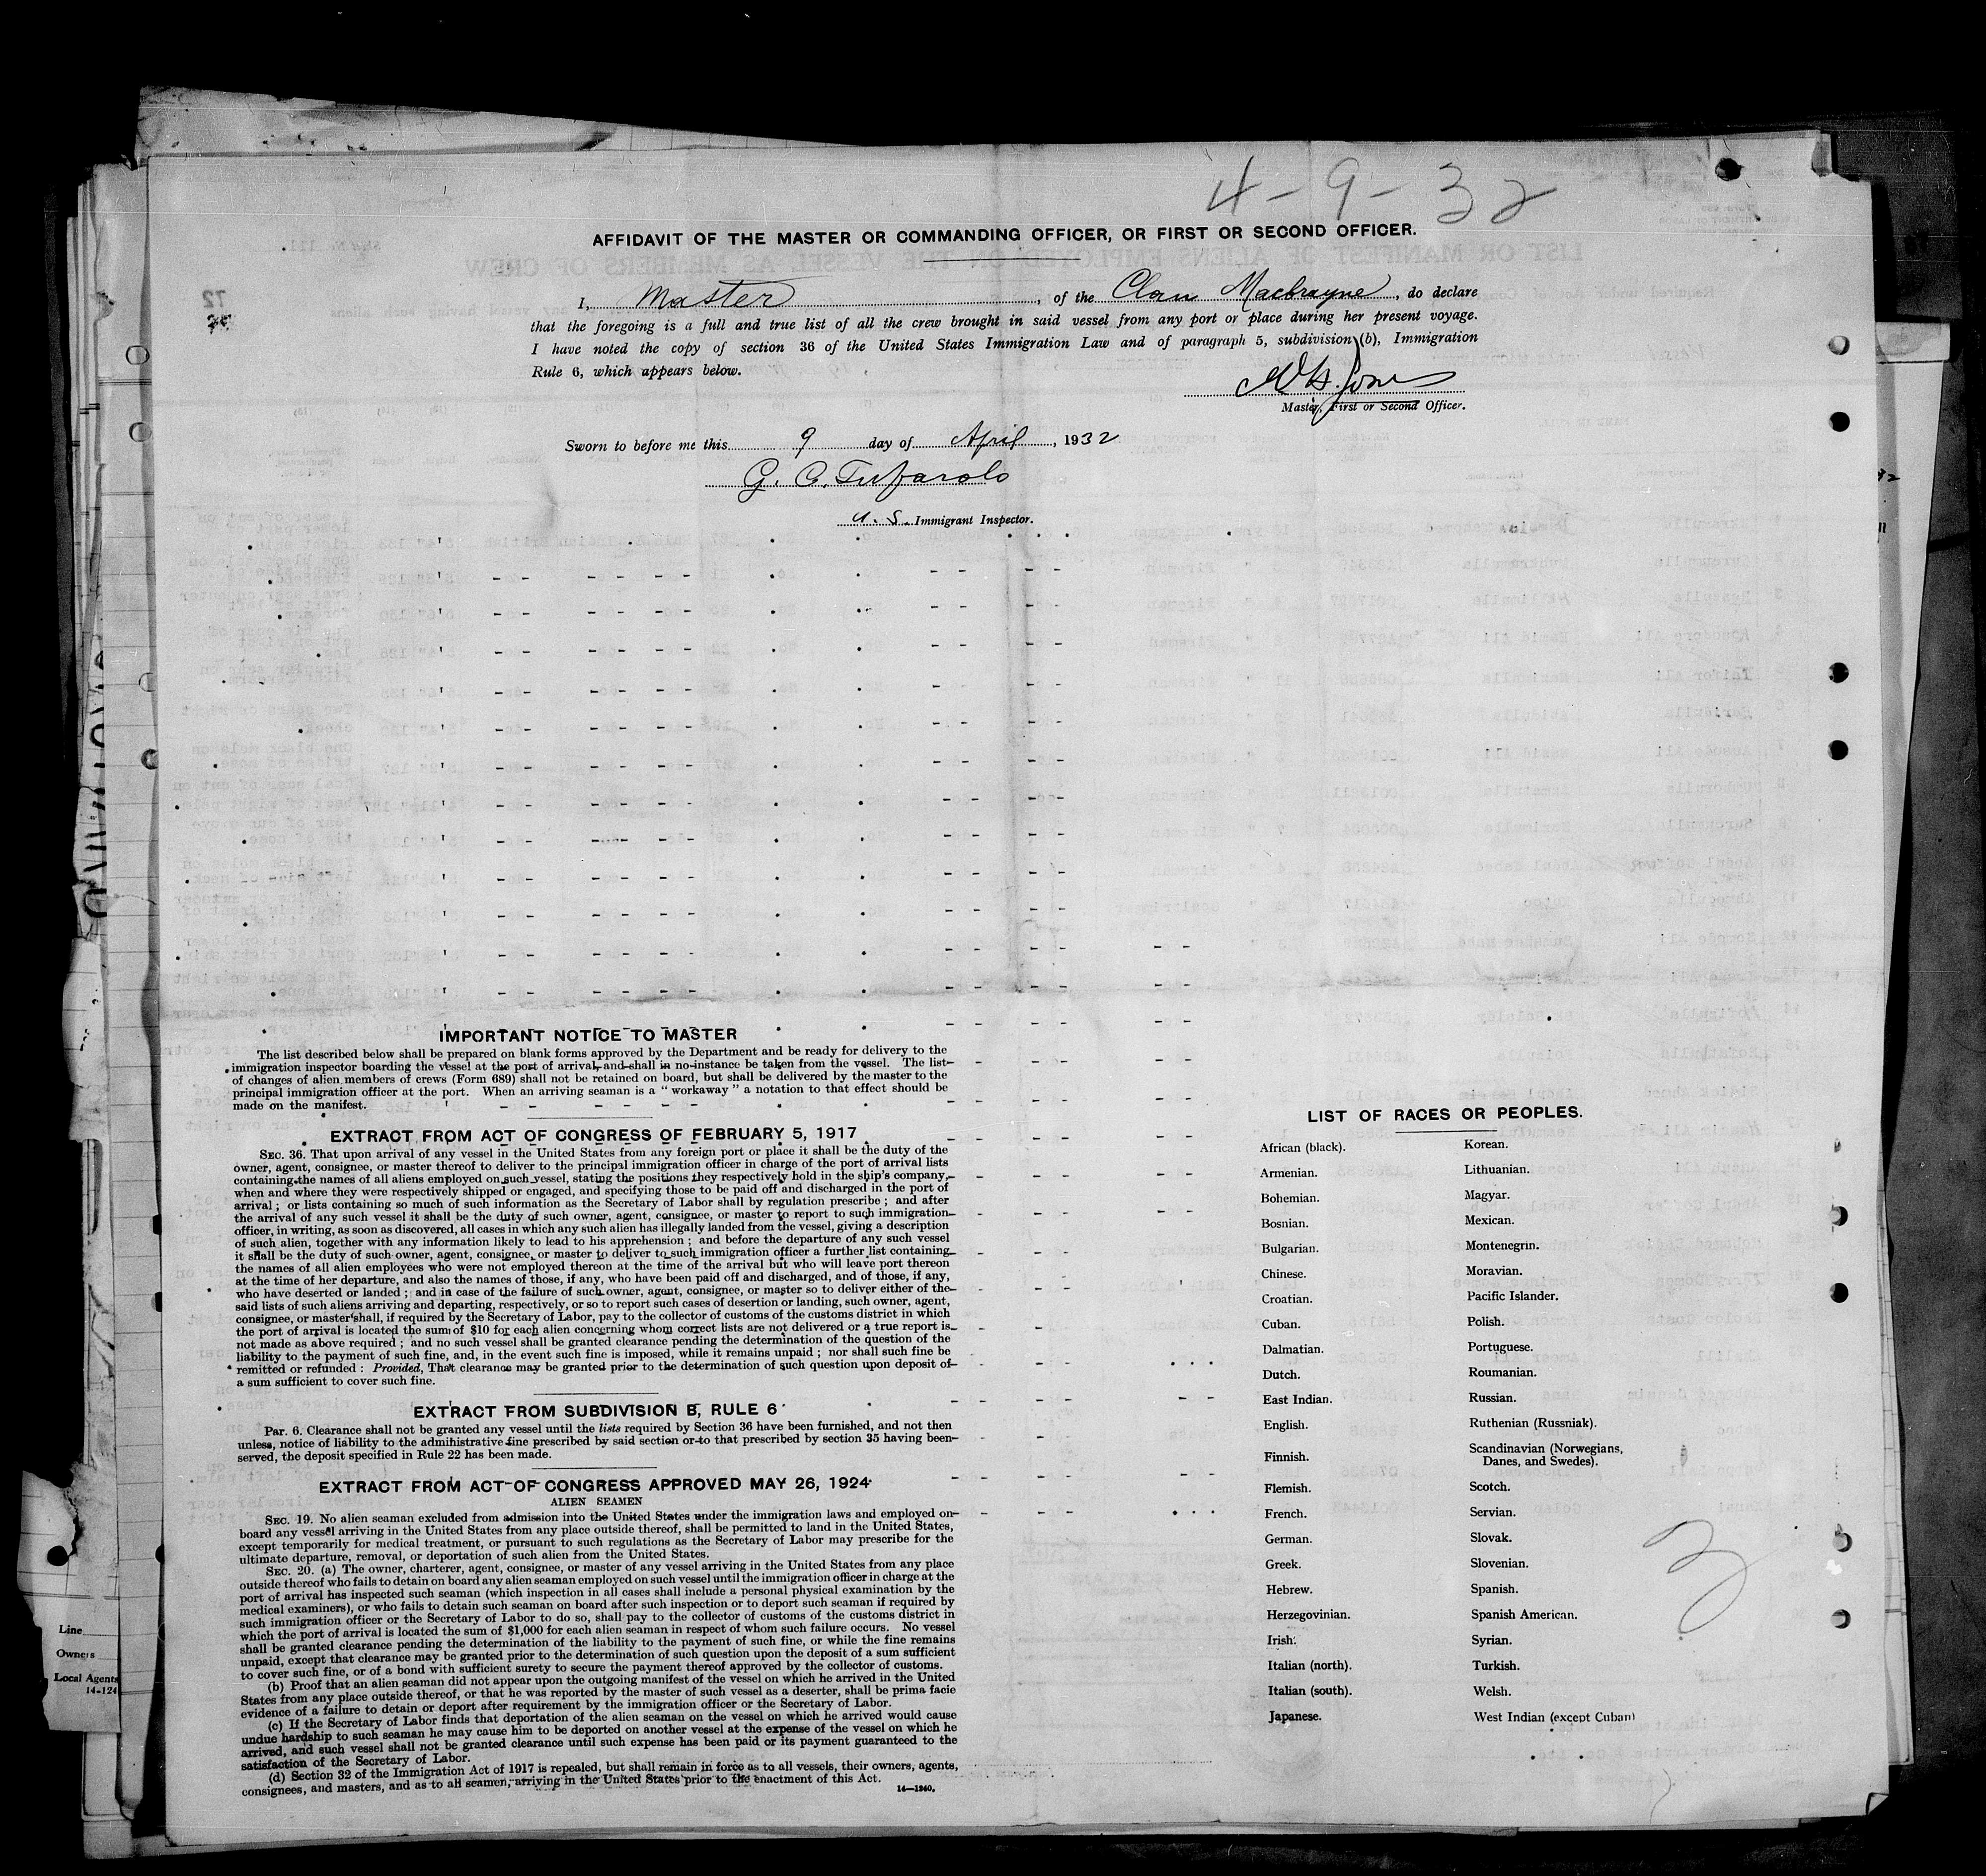 4-9-32
AFFIDAVIT OF THE MASTER OR COMMANDING OFFICER, OR FIRST OR SECOND OFFICER.
I, Master, of the Clan Macbrayne, do declare
that the foregoing is a full and true list of all the crew brought in said vessel from any port or place during her present voyage.
I have noted the copy of section 36 of the United States Immigration Law and of paragraph 5, subdivision (b), Immigration
Rule 6, which appears below.
Jones
Master, First or Second Officer.
Sworn to before me this 9 day of April, 1932
G. C. Tufarolo
U. S. Immigrant Inspector.
IMPORTANT NOTICE TO MASTER
The list described below shall be prepared on blank forms approved by the Department and be ready for delivery to the
immigration inspector boarding the vessel at the port of arrival, and shall in no instance be taken from the vessel. The list
of changes of alien members of crews (Form 689) shall not be retained on board, but shall be delivered by the master to the
principal immigration officer at the port. When an arriving seaman is a "workaway" a notation to that effect should be
made on the manifest.
EXTRACT FROM ACT OF CONGRESS OF FEBRUARY 5, 1917
SEC. 36. That upon arrival of any vessel in the United States from any foreign port or place it shall be the duty of the
owner, agent, consignee, or master thereof to deliver to the principal immigration officer in charge of the port of arrival lists
containing the names of all aliens employed on such vessel, stating the positions they respectively hold in the ship's company,
when and where they were respectively shipped or engaged, and specifying those to be paid off and discharged in the port of
arrival; or lists containing so much of such information as the Secretary of Labor shall by regulation prescribe; and after
the arrival of any such vessel it shall be the duty of such owner, agent, consignee, or master to report to such immigration
officer, in writing, as soon as discovered, all cases in which any such alien has illegally landed from the vessel, giving a description
of such alien, together with any information likely to lead to his apprehension; and before the departure of any such vessel
it shall be the duty of such owner, agent, consignee, or master to deliver to such immigration officer a further list containing
the names of all alien employees who were not employed thereon at the time of the arrival but who will leave port thereon
at the time of her departure, and also the names of those, if any, who have been paid off and discharged, and of those, if any,
who have deserted or landed; and in case of the failure of such owner, agent, consignee, or master so to deliver either of the
said lists of such aliens arriving and departing, respectively, or so to report such cases of desertion or landing, such owner, agent,
consignee, or master shall, if required by the Secretary of Labor, pay to the collector of customs of the customs district in which
the port of arrival is located the sum of $10 for each alien concerning whom correct lists are not delivered or a true report is
not made as above required; and no such vessel shall be granted clearance pending the determination of the question of the
liability to the payment of such fine, and, in the event such fine is imposed, while it remains unpaid; nor shall such fine be
remitted or refunded: Provided, That clearance may be granted prior to the determination of such question upon deposit of
a sum sufficient to cover such fine.
EXTRACT FROM SUBDIVISION B, RULE 6
Par. 6. Clearance shall not be granted any vessel until the lists required by Section 36 have been furnished, and not then
unless, notice of liability to the administrative fine prescribed by said section or to that prescribed by section 35 having been
served, the deposit specified in Rule 22 has been made.
EXTRACT FROM ACT OF CONGRESS APPROVED MAY 26, 1924
ALIEN SEAMEN
SEC. 19. No alien seaman excluded from admission into the United States under the immigration laws and employed on
board any vessel arriving in the United States from any place outside thereof, shall be permitted to land in the United States,
except temporarily for medical treatment, or pursuant to such regulations as the Secretary of Labor may prescribe for the
ultimate departure, removal, or deportation of such alien from the United States.
SEC. 20. (a) The owner, charterer, agent, consignee, or master of any vessel arriving in the United States from any place
outside thereof who fails to detain on board any alien seaman employed on such vessel until the immigration officer in charge at the
port of arrival has inspected such seaman (which inspection in all cases shall include a personal physical examination by the
medical examiners), or who fails to detain such seaman on board after such inspection or to deport such seaman if required by
such immigration officer or the Secretary of Labor to do so, shall pay to the collector of customs of the customs district in
which the port of arrival is located the sum of $1,000 for each alien seaman in respect of whom such failure occurs. No vessel
shall be granted clearance pending the determination of the liability to the payment of such fine, or while the fine remains
unpaid, except that clearance may be granted prior to the determination of such question upon the deposit of a sum sufficient
to cover such fine, or of a bond with sufficient surety to secure the payment thereof approved by the collector of customs.
(b) Proof that an alien seaman did not appear upon the outgoing manifest of the vessel on which he arrived in the United
States from any place outside thereof, or that he was reported by the master of such vessel as a deserter, shall be prima facie
evidence of a failure to detain or deport after requirement by the immigration officer or the Secretary of Labor.
(c) If the Secretary of Labor finds that deportation of the alien seaman on the vessel on which he arrived would cause
undue hardship to such seaman he may cause him to be deported on another vessel at the expense of the vessel on which he
arrived, and such vessel shall not be granted clearance until such expense has been paid or its payment guaranteed to the
satisfaction of the Secretary of Labor.
(d) Section 32 of the Immigration Act of 1917 is repealed, but shall remain in force as to all vessels, their owners, agents,
consignees, and masters, and as to all seamen, arriving in the United States prior to the enactment of this Act.
14—1240.
LIST OF RACES OR PEOPLES.
African (black).
Armenian.
Bohemian.
Bosnian.
Bulgarian.
Chinese.
Croatian.
Cuban.
Dalmatian.
Dutch.
East Indian.
English.
Finnish.
Flemish.
French.
German.
Greek.
Hebrew.
Herzegovinian.
Irish.
Italian (north).
Italian (south).
Japanese.
Korean.
Lithuanian.
Magyar.
Mexican.
Montenegrin.
Moravian.
Pacific Islander.
Polish.
Portuguese.
Roumanian.
Russian.
Ruthenian (Russniak).
Scandinavian (Norwegians,
Danes, and Swedes).
Scotch.
Servian.
Slovak.
Slovenian.
Spanish.
Spanish American.
Syrian.
Turkish.
Welsh.
West Indian (except Cuban)
3
Line
Owners
Local Agents
14-124